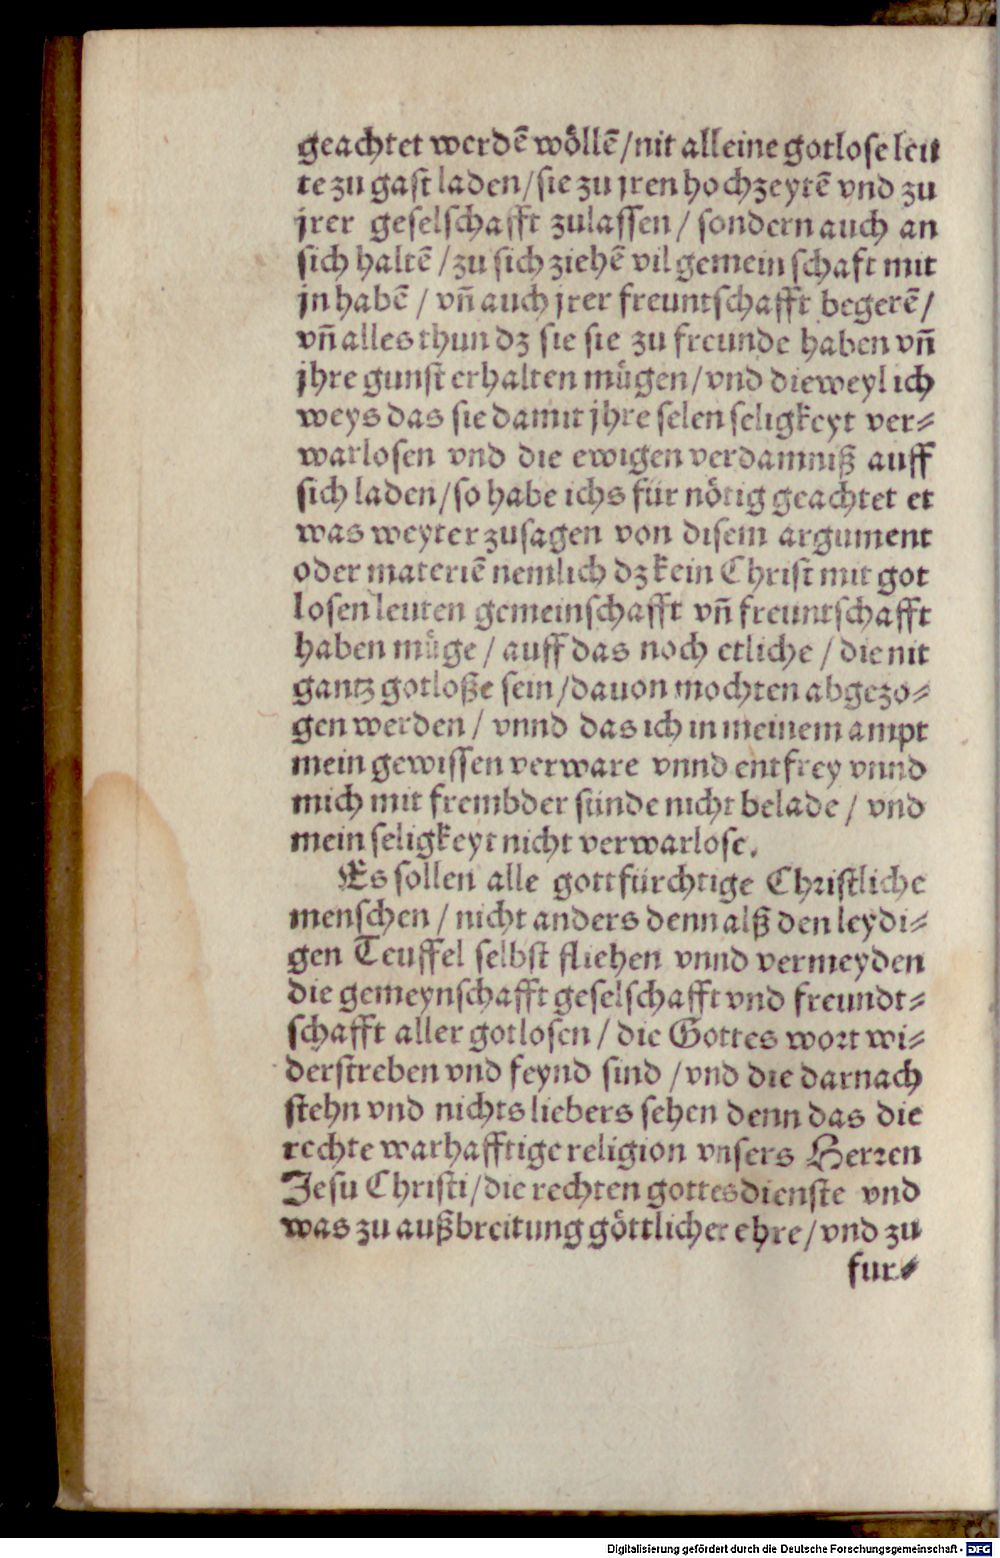 geachtet werdē wöllē/nit alleine gotlose leu
te zu gast laden/sie zu jren hochzeytē vnd zu
jrer geselschafft zulassen/ sondern auch an
sich haltē/zu sich ziehē vil gemeinschaft mit
jn habē/ vñ auch jrer freuntschafft begerē/
vñ alles thun dz sie sie zu freunde haben vñ
jhre gunst erhalten mügen/vnd dieweyl ich
weys das sie damit jhre selen seligkeyt ver⸗
warlosen vnd die ewigen verdamniß auff
sich laden/so habe ichs für nötig geachtet et
was weyter zusagen von disem argument
oder materiē nemlich dz kein Christ mit got
losen leuten gemeinschafft vñ freuntschafft
haben müge/ auff das noch etliche/ die nit
gantz gotloße sein/dauon mochten abgezo⸗
gen werden/ vnnd das ich in meinem ampt
mein gewissen verware vnnd entfrey vnnd
mich mit frembder sünde nicht belade/ vnd
mein seligkeyt nicht verwarlose.
Es sollen alle gottfürchtige Christliche
menschen/ nicht anders denn alß den leydi⸗
gen Teuffel selbst fliehen vnnd vermeyden
die gemeynschafft geselschafft vnd freundt⸗
schafft aller gotlosen/ die Gottes wort wi⸗
derstreben vnd feynd sind/vnd die darnach
stehn vnd nichts liebers sehen denn das die
rechte warhafftige religion vnsers Herren
Jesu Christi/die rechten gottesdienste vnd
was zu außbreitung göttlicher ehre/vnd zu
fur⸗
Digitalisierung gefördert durch die Deutsche Forschungsgemeinschaft - DFG